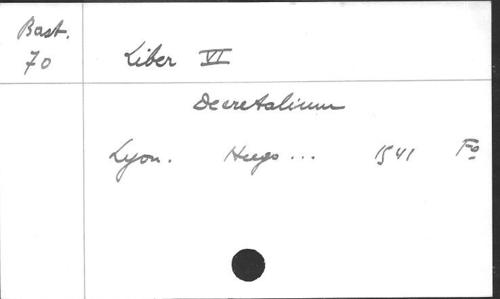 Bast.
70
Liber VI
Decretalium
Lyon. Hugo ... 1541 Fo